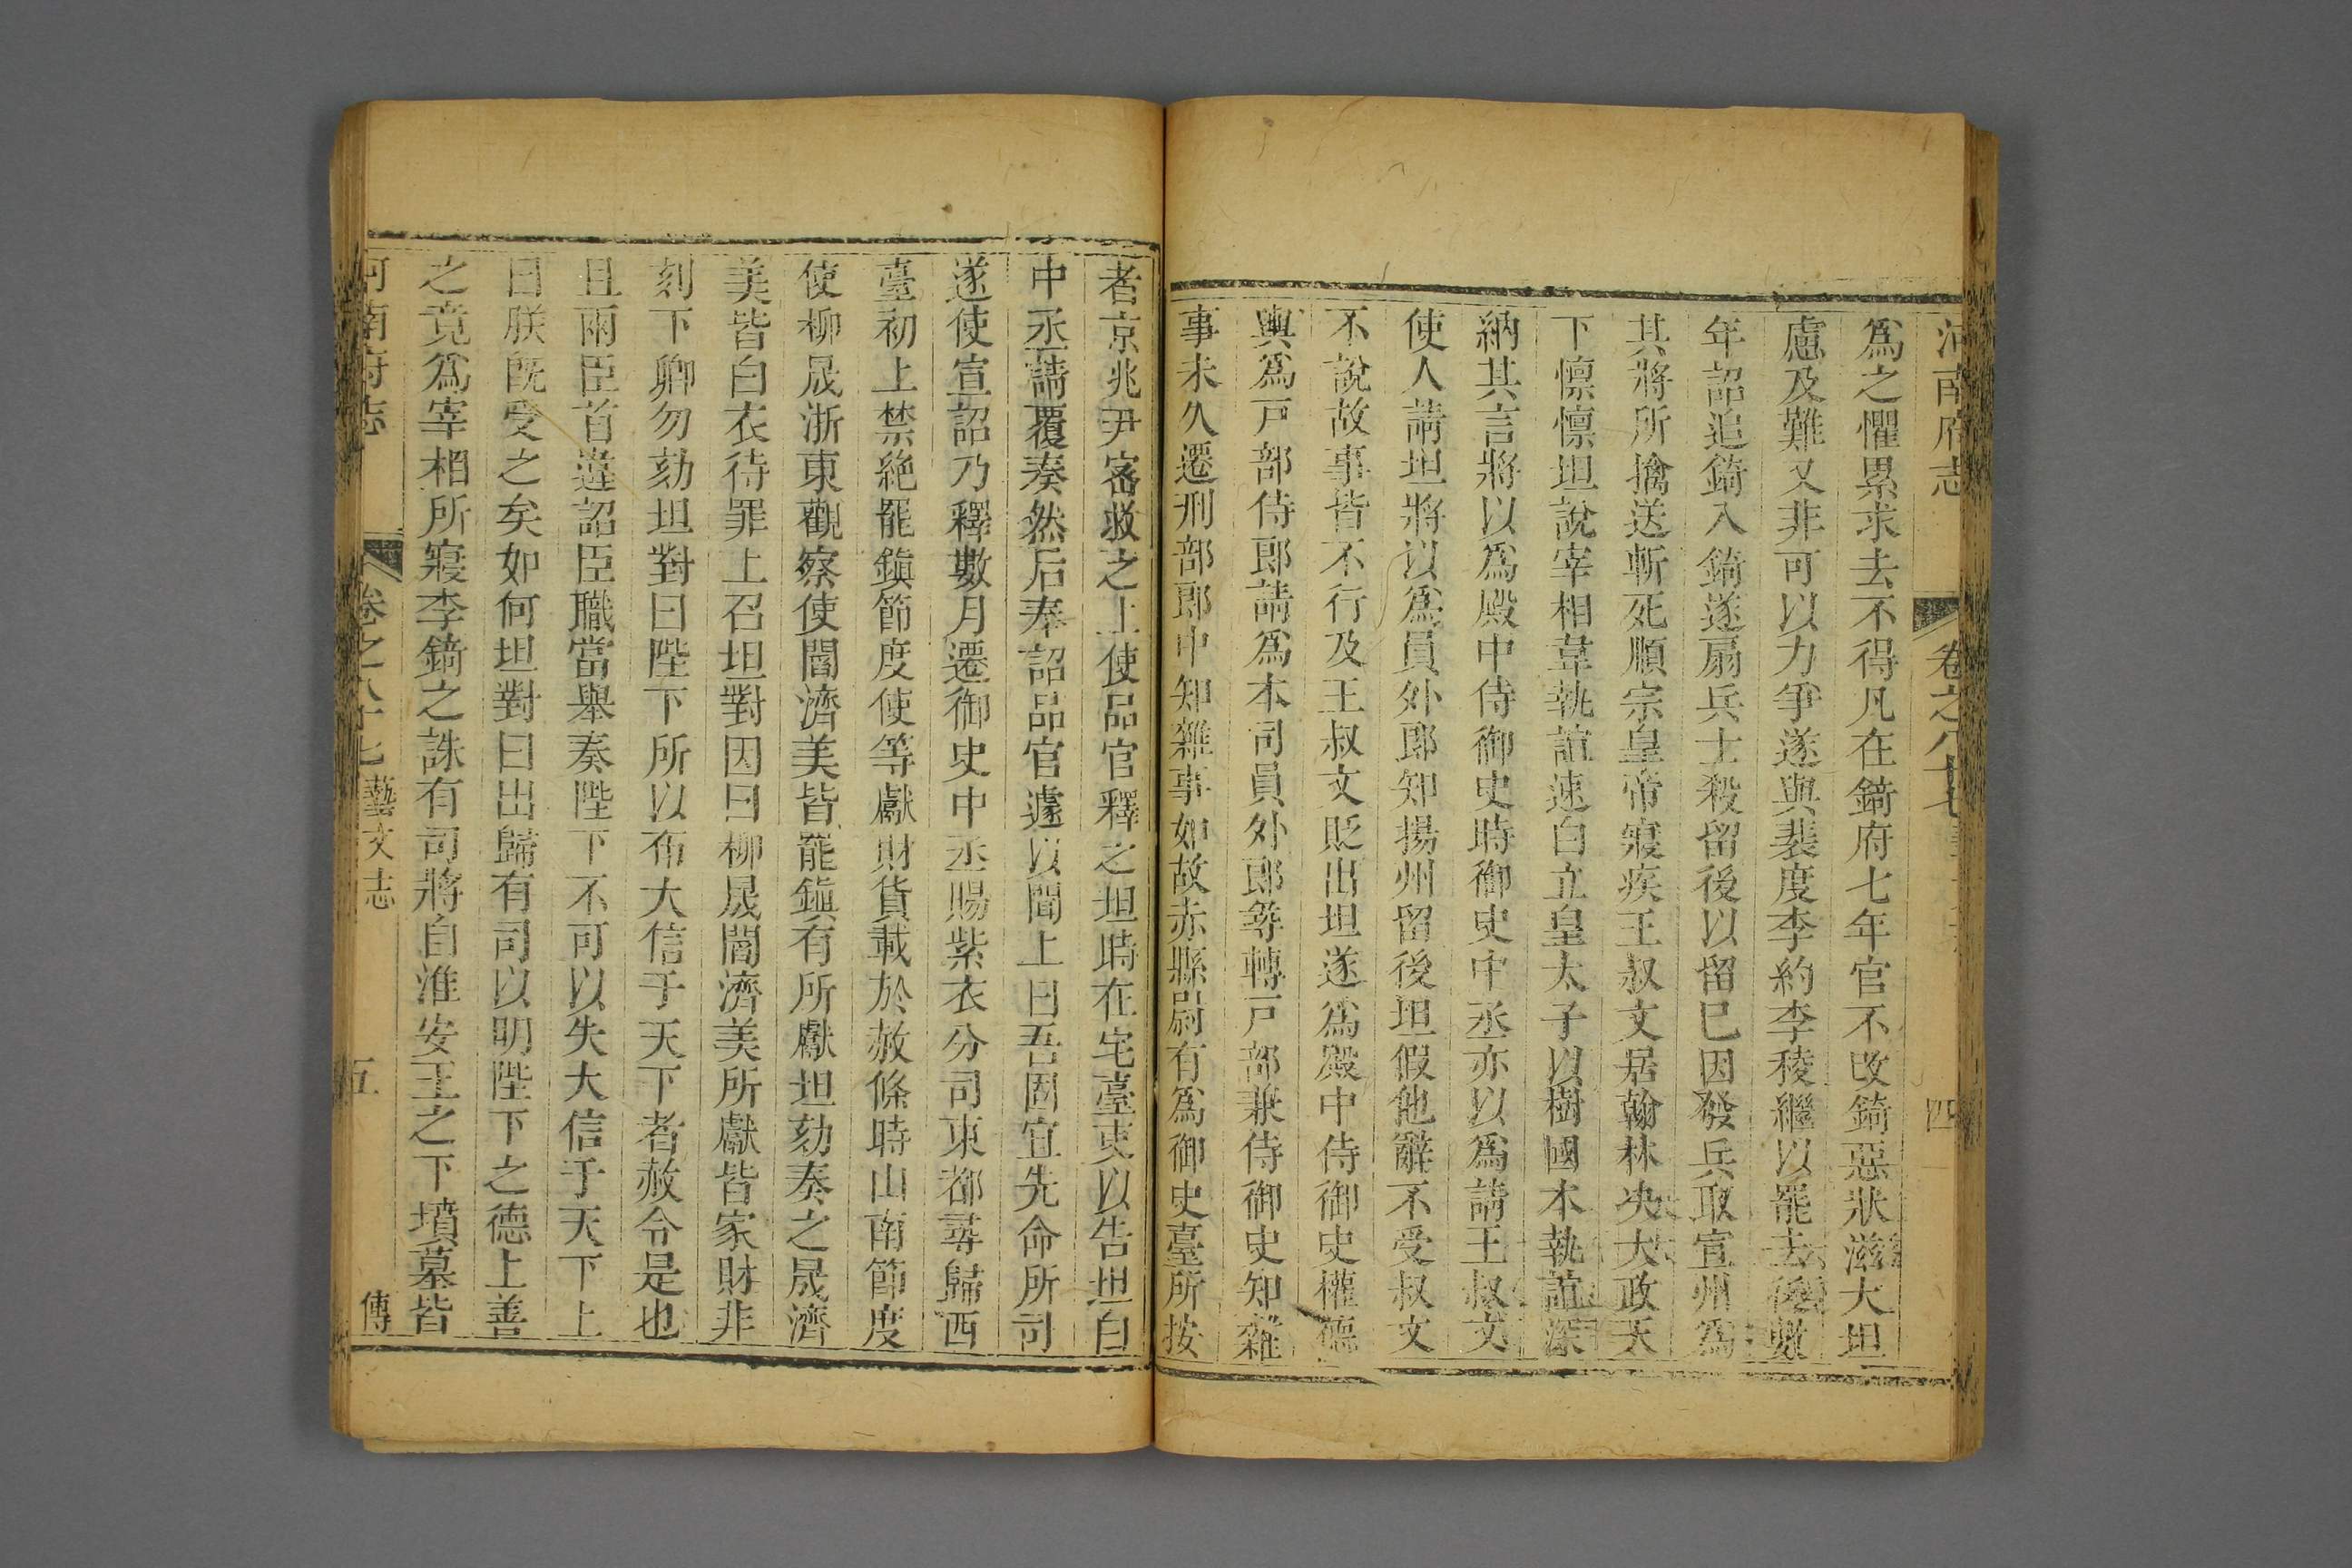 河南府志 卷之八十七 四
爲之懼累求去不得凡在錡府七年官不改錡惡狀滋大坦
慮及難又非可以力爭遂與裴度李約李稜繼以罷去後數
年詔追錡入錡遂扇兵士殺留後以留已因發兵取宣州爲
其將所擒送斬死順宗皇帝寢疾王叔文居翰林决大政天
下懍懍坦說宰相韋執誼速白立皇太子以樹國本執誼深
納其言將以爲殿中侍御史時御史中丞亦以爲請王叔文
使人請坦將以爲員外郎知揚州留後坦假他辭不受叔文
不說故事皆不行及王叔文貶出坦遂爲殿中侍御史權德
輿爲戸部侍郎請爲本司員外郎尋轉戸部兼侍御史知雜
事未久遷刑部郎中知雜事如故赤縣尉有爲御史臺所按
者京兆尹密救之上使品官釋之坦時在宅臺吏以告坦白
中丞請覆奏然后奉詔品官遽以聞上曰吾固宜先命所司
遂使宣詔乃釋數月遷御史中丞賜紫衣分司東都尋歸西
臺初上禁絶罷鎭節度使等獻財貨載於赦條時山南節度
使柳晟浙東觀察使閻濟美皆罷鎭有所獻坦劾奏之晟濟
美皆白衣待罪上召坦對因曰柳晟閻濟美所獻皆家財非
刻下卿勿劾坦對曰陛下所以布大信于天下者赦令是也
且兩臣首違詔臣職當舉奏陛下不可以失大信于天下上
曰朕旣受之矣如何坦對曰出歸有司以明陛下之德上善
之竟爲宰相所寢李錡之誅有司將自淮安王之下墳墓皆
河南府志 卷之八十七 藝文志 五 傳